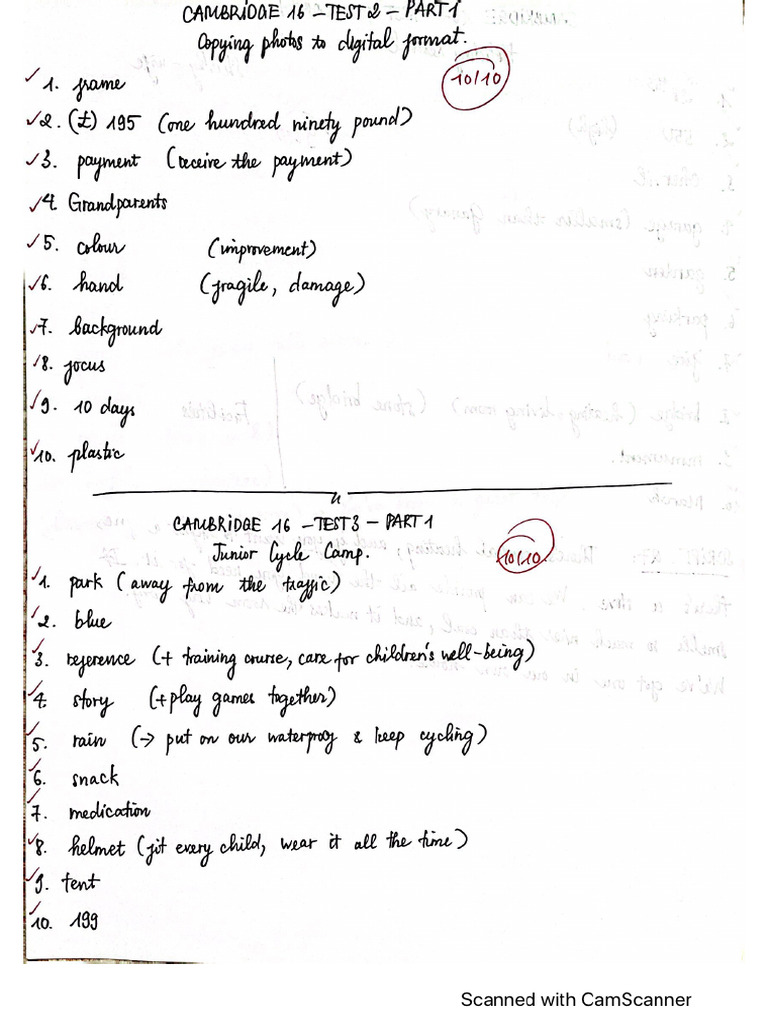 CAMBRIDGE 16 - TEST 2 - PART 1
Copying photos to digital format.
10/10
1. frame
2. (£) 195 (one hundred ninety pound)
3. payment (receive the payment)
4. Grandparents
5. colour (improvement)
6. hand (fragile, damage)
7. background
8. focus
9. 10 days
10. plastic
CAMBRIDGE 16 - TEST 3 - PART 1
Junior Cycle Camp.
10/10
1. park (away from the traffic)
2. blue
3. reference (+ training course, care for children's well-being)
4. story (+ play games together)
5. rain (→ put on our waterproof & keep cycling)
6. snack
7. medication
8. helmet (fit every child, wear it all the time)
9. tent
10. 199
Scanned with CamScanner